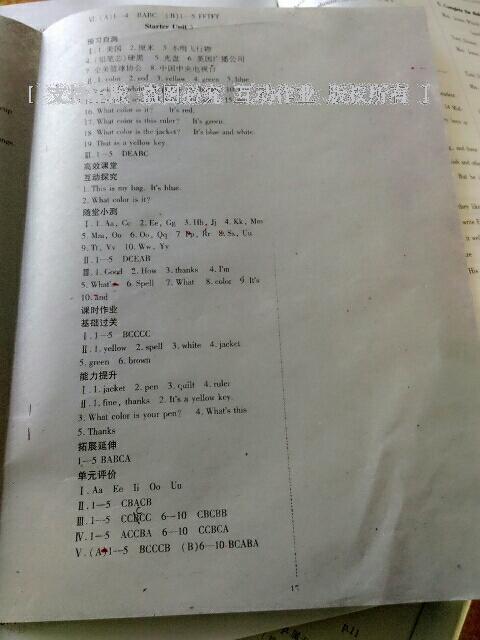 Ⅵ. (A)1—4 BABC (B)1—5 FFTFT
Starter Unit 3
预习自测
Ⅰ. 1. 美国 2. 厘米 3. 不明飞行物
4. (铅笔芯)硬黑 5. 光盘 6. 英国广播公司
7. 全美篮球协会 8. 中国中央电视台
Ⅱ. 1. color 2. red 3. yellow 4. green 5. blue
版权所有 ]
16. What color is it? It's red.
17. What color is this ruler? It's green.
18. What color is the jacket? It's blue and white.
19. That is a yellow key.
Ⅲ. 1—5 DEABC
高效课堂
互动探究
1. This is my bag. It's blue.
2. What color is it?
随堂小测
Ⅰ. 1. Aa, Cc 2. Ee, Gg 3. Hh, Jj 4. Kk, Mm
5. Mm, Oo 6. Oo, Qq 7. Pp, Rr 8. Ss, Uu
9. Tt, Vv 10. Ww, Yy
Ⅱ. 1—5 DCEAB
Ⅲ. 1. Good 2. How 3. thanks 4. I'm
5. What's 6. Spell 7. What 8. color 9. It's
10. and
课时作业
基础过关
Ⅰ. 1—5 BCCCC
Ⅱ. 1. yellow 2. spell 3. white 4. jacket
5. green 6. brown
能力提升
Ⅰ. 1. jacket 2. pen 3. quilt 4. ruler
Ⅱ. 1. fine, thanks 2. It's a yellow key.
3. What color is your pen? 4. What's this
5. Thanks
拓展延伸
1—5 BABCA
单元评价
Ⅰ. Aa Ee Ii Oo Uu
Ⅱ. 1—5 CBACB
Ⅲ. 1—5 CCBCC 6—10 CBCBB
Ⅳ. 1—5 ACCBA 6—10 CCBCA
Ⅴ. (A)1—5 BCCCB (B)6—10 BCABA